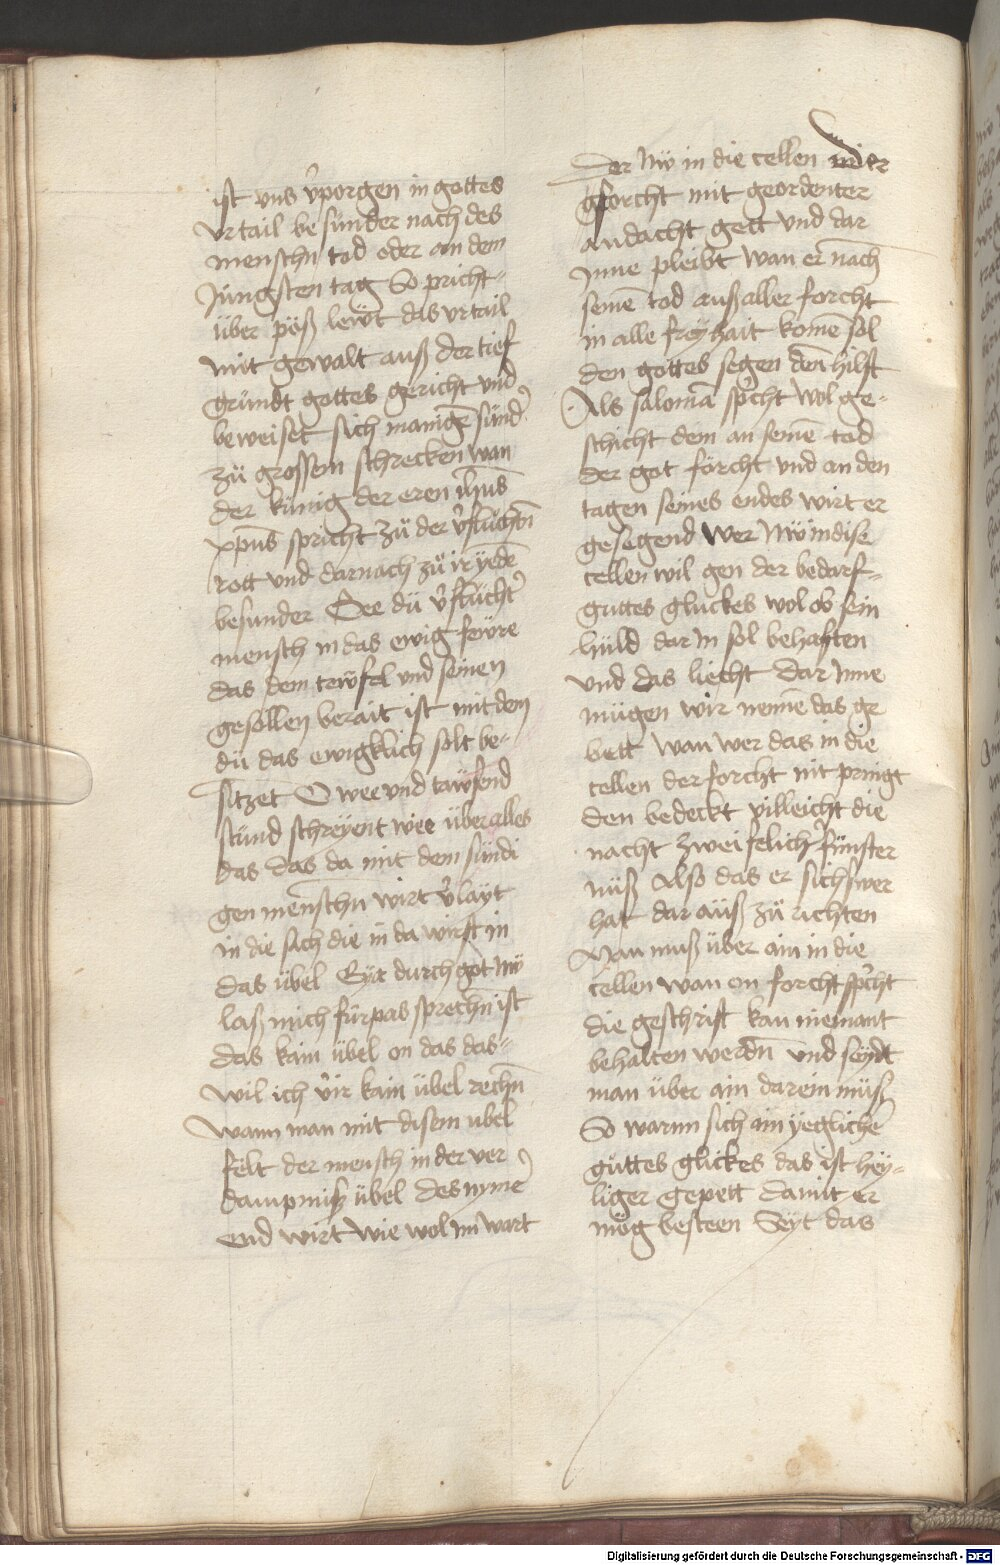 ist vns v̉porgen in gottes
vrtail besunder nach des
menschn tod oder an dem
Jungsten tag So pricht
über pöß lewt das vrtail
mit gewalt auß der tief
gründt gottes gericht vnd
beweiset sich manigē sündˀ
zü grossem schrecken wan
der künig der eren ihūs
xp̄us spricht zü der v̉flüchtn̄
rott vnd darnach zü ir yedē
besunder Gee dü v̉flüchtˀ
mensch in das ewig fewre
das dem tewfel vnd seinen
gesellen berait ist mit den
dü das ewigklich solt be-
sitzet O wee vnd tawsend
stünd schreyent wee über alles
das das da mit dem sündi
gen menschn wirt v̉layt
in die sach die in da wirft in
das übel Eya durch got nw
laß mich fürpas sprechn̄ ist
das kain übel on das das
wil ich v̉ir kain übel rechn̄
Wann man mit disem ubel
felt der mensch in der ver
dampniß übel des nymˀ
end wirt wie wol im wart
Der nw in die cellen in der
gforcht mit geordenter
andacht gett vnd dar
Jnne pleibt wan er nach
seinē tod auß aller forcht
in alle freyhait komē sol
den gottes segen dem hilft
Als salomā spͨcht wol ge-
schicht dem an seinē tod
der got förcht vnd an den
tagen seines endes wirt er
gesegend Wer nw in dise
cellen wil gen der bedarf
guttes gluckes wol ob sein
hüld dar in sol behaften
vnd das liecht Dar Jnne
mügen wir nemē das ge
bett wan wer das in die
cellen der forcht nit pringt
den bedeckt villeicht die
nacht zweifelicher fünster
nüß Also das er sich swer
hat dar auß zü richten
Man muß über ain in die
cellen wan on forcht spͨcht
die geschrift kan niemant
behalten werdn̄ vnd seydt
man über ain darein müß
So warnn sich ain yeglichˀ
guttes glickes das ist hey-
liger gepett damit er
mög besteen Seyt das
Digitalisierung gefördert durch die Deutsche Forschungsgemeinschaft - DFG